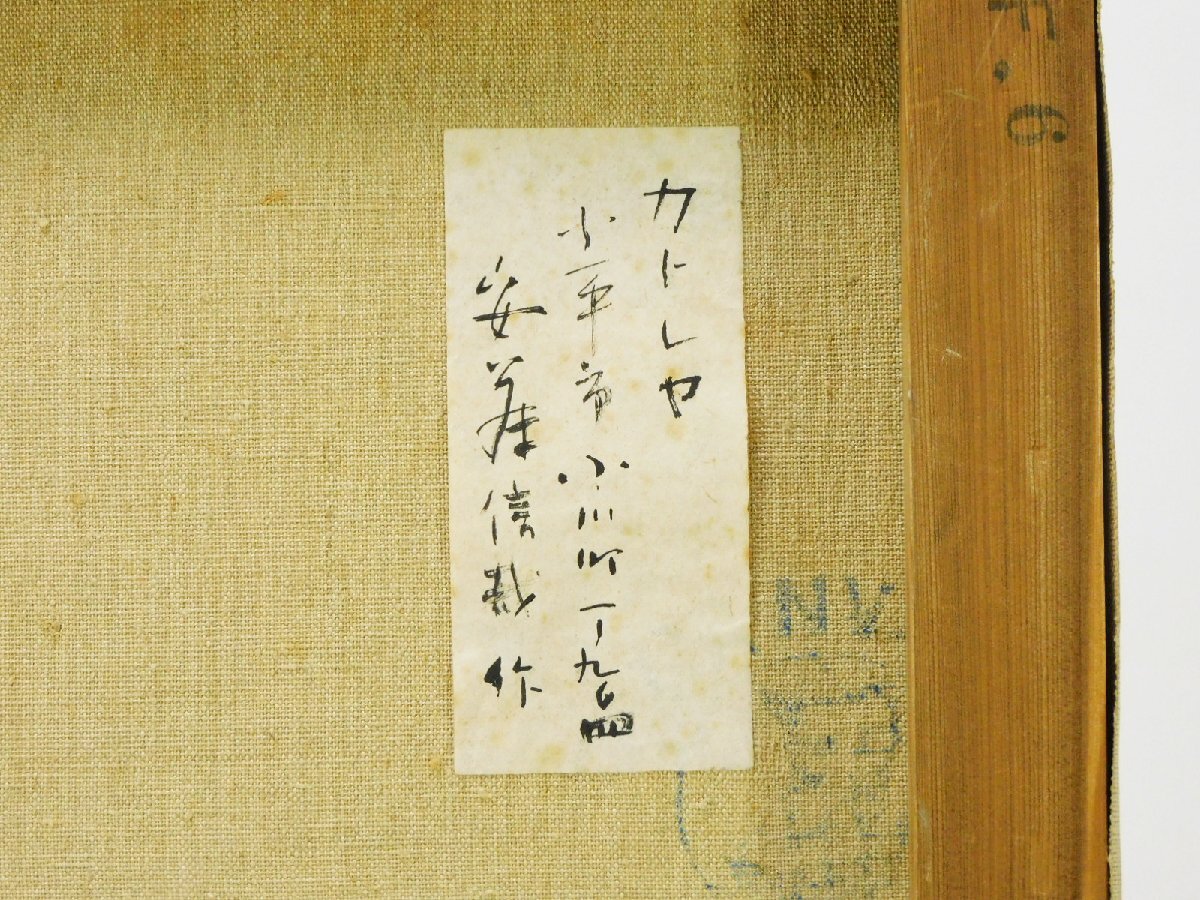 カトレヤ
小平市小川町一丁九〇四
安藤信哉作
F.6
NV